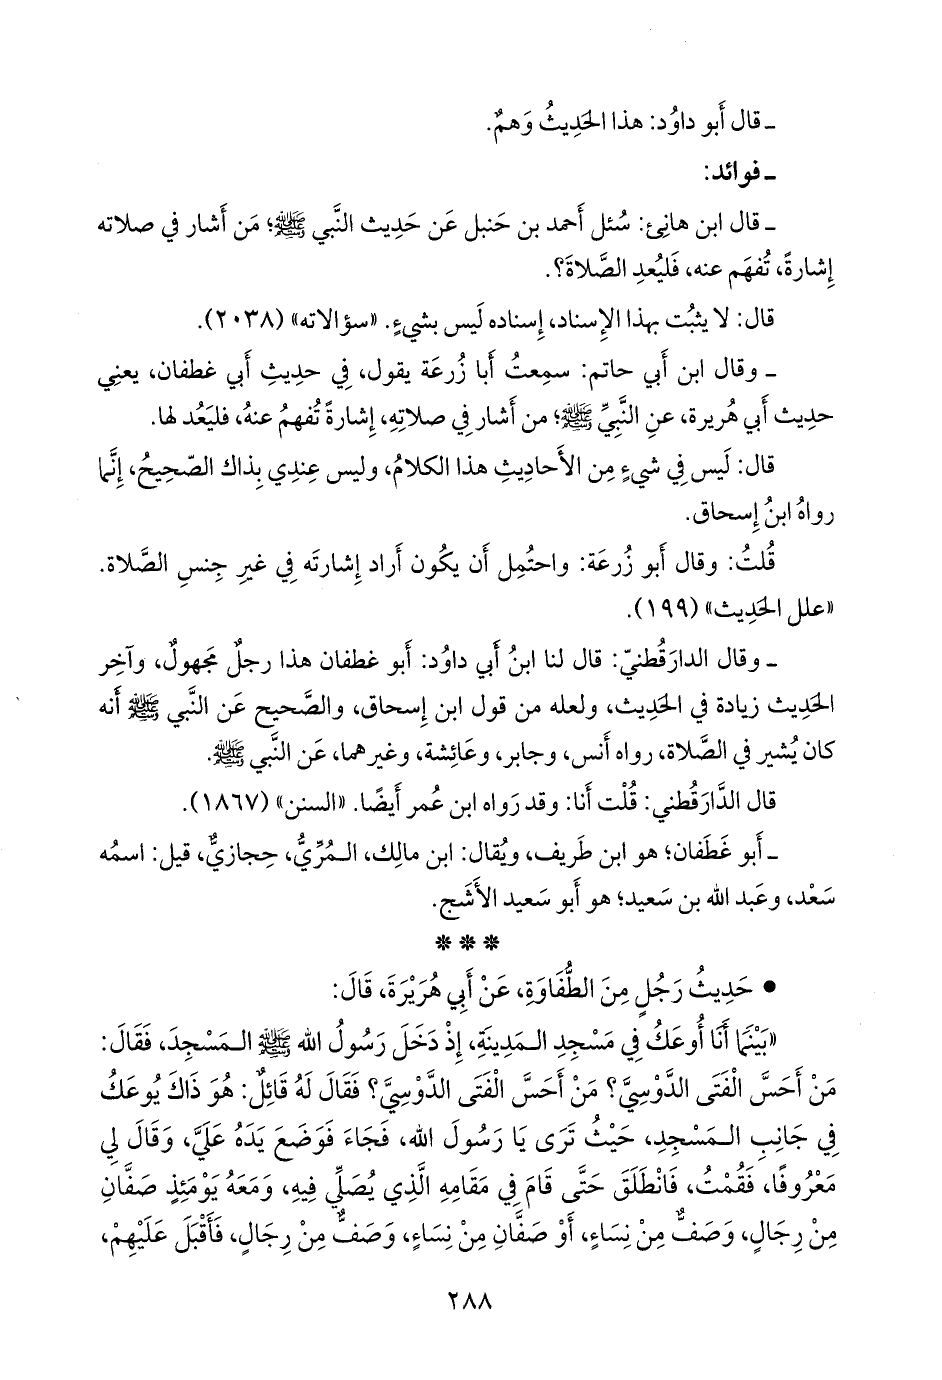 ـ قال أَبو داوُد: هذا الحَدِيثُ وَهمٌ.
ـ فوائد:
ـ قال ابن هانِئ: سُئل أَحمد بن حَنبل عَن حَدِيث النَّبي ﷺ؛ مَن أَشار في صلاته
إِشارةً، تُفهَم عنه، فَليُعدِ الصَّلاةَ؟.
قال: لا يثبُت بهذا الإِسناد، إِسناده لَيس بشيءٍ. «سؤالاته» (٢٠٣٨).
ـ وقال ابن أَبي حاتم: سمِعتُ أَبا زُرعَة يقول، فِي حدِيثِ أَبي غطفان، يعنِي
حدِيث أَبي هُريرة، عنِ النَّبِيِّ ﷺ؛ من أَشار فِي صلاتِهِ، إِشارةً تُفهمُ عنهُ، فليَعُد لها.
قال: لَيس فِي شيءٍ مِن الأَحادِيثِ هذا الكلامُ، وليس عِندِي بِذاك الصّحِيحُ، إِنَّما
رواهُ ابنُ إِسحاق.
قُلتُ: وقال أَبو زُرعَة: واحتُمِل أَن يكُون أَراد إِشارتَه فِي غيرِ جِنسِ الصَّلاة.
«علل الحَدِيث» (١٩٩).
ـ وقال الدارَقُطنيّ: قال لنا ابنُ أَبي داوُد: أَبو غطفان هذا رجلٌ مَجهولٌ، وآخِر
الحَدِيث زيادة في الحَدِيث، ولعله من قول ابن إِسحاق، والصَّحيح عَن النَّبي ﷺ أَنه
كان يُشير في الصَّلاة، رواه أَنس، وجابر، وعَائِشة، وغيرهما، عَن النَّبي ﷺ.
قال الدَّارَقُطني: قُلْت أَنا: وقد رَواه ابن عُمر أَيضًا. «السنن» (١٨٦٧).
ـ أَبو غَطَفان؛ هو ابن طَريف، ويُقال: ابن مالِك، المُرِّيُّ، حِجازيٌّ، قيل: اسمُه
سَعْد، وعَبد الله بن سَعيد؛ هو أَبو سَعيد الأَشَج.
* * *
• حَدِيثُ رَجُلٍ مِنَ الطُّفَاوَةِ، عَنْ أَبِي هُرَيْرَةَ، قَالَ:
«بَيْنَمَا أَنَا أُوعَكُ فِي مَسْجِدِ المَدِينَةِ، إِذْ دَخَلَ رَسُولُ الله ﷺ المَسْجِدَ، فَقَالَ:
مَنْ أَحَسَّ الْفَتَى الدَّوْسِيَّ؟ مَنْ أَحَسَّ الْفَتَى الدَّوْسِيَّ؟ فَقَالَ لَهُ قَائِلٌ: هُوَ ذَاكَ يُوعَكُ
فِي جَانِبِ المَسْجِدِ، حَيْثُ تَرَى يَا رَسُولَ الله، فَجَاءَ فَوَضَعَ يَدَهُ عَلَيَّ، وَقَالَ لِي
مَعْرُوفًا، فَقُمْتُ، فَانْطَلَقَ حَتَّى قَامَ فِي مَقَامِهِ الَّذِي يُصَلِّي فِيهِ، وَمَعَهُ يَوْمَئِذٍ صَفَّانِ
مِنْ رِجَالٍ، وَصَفٌّ مِنْ نِسَاءٍ، أَوْ صَفَّانِ مِنْ نِسَاءٍ، وَصَفٌّ مِنْ رِجَالٍ، فَأَقْبَلَ عَلَيْهِمْ،
٢٨٨